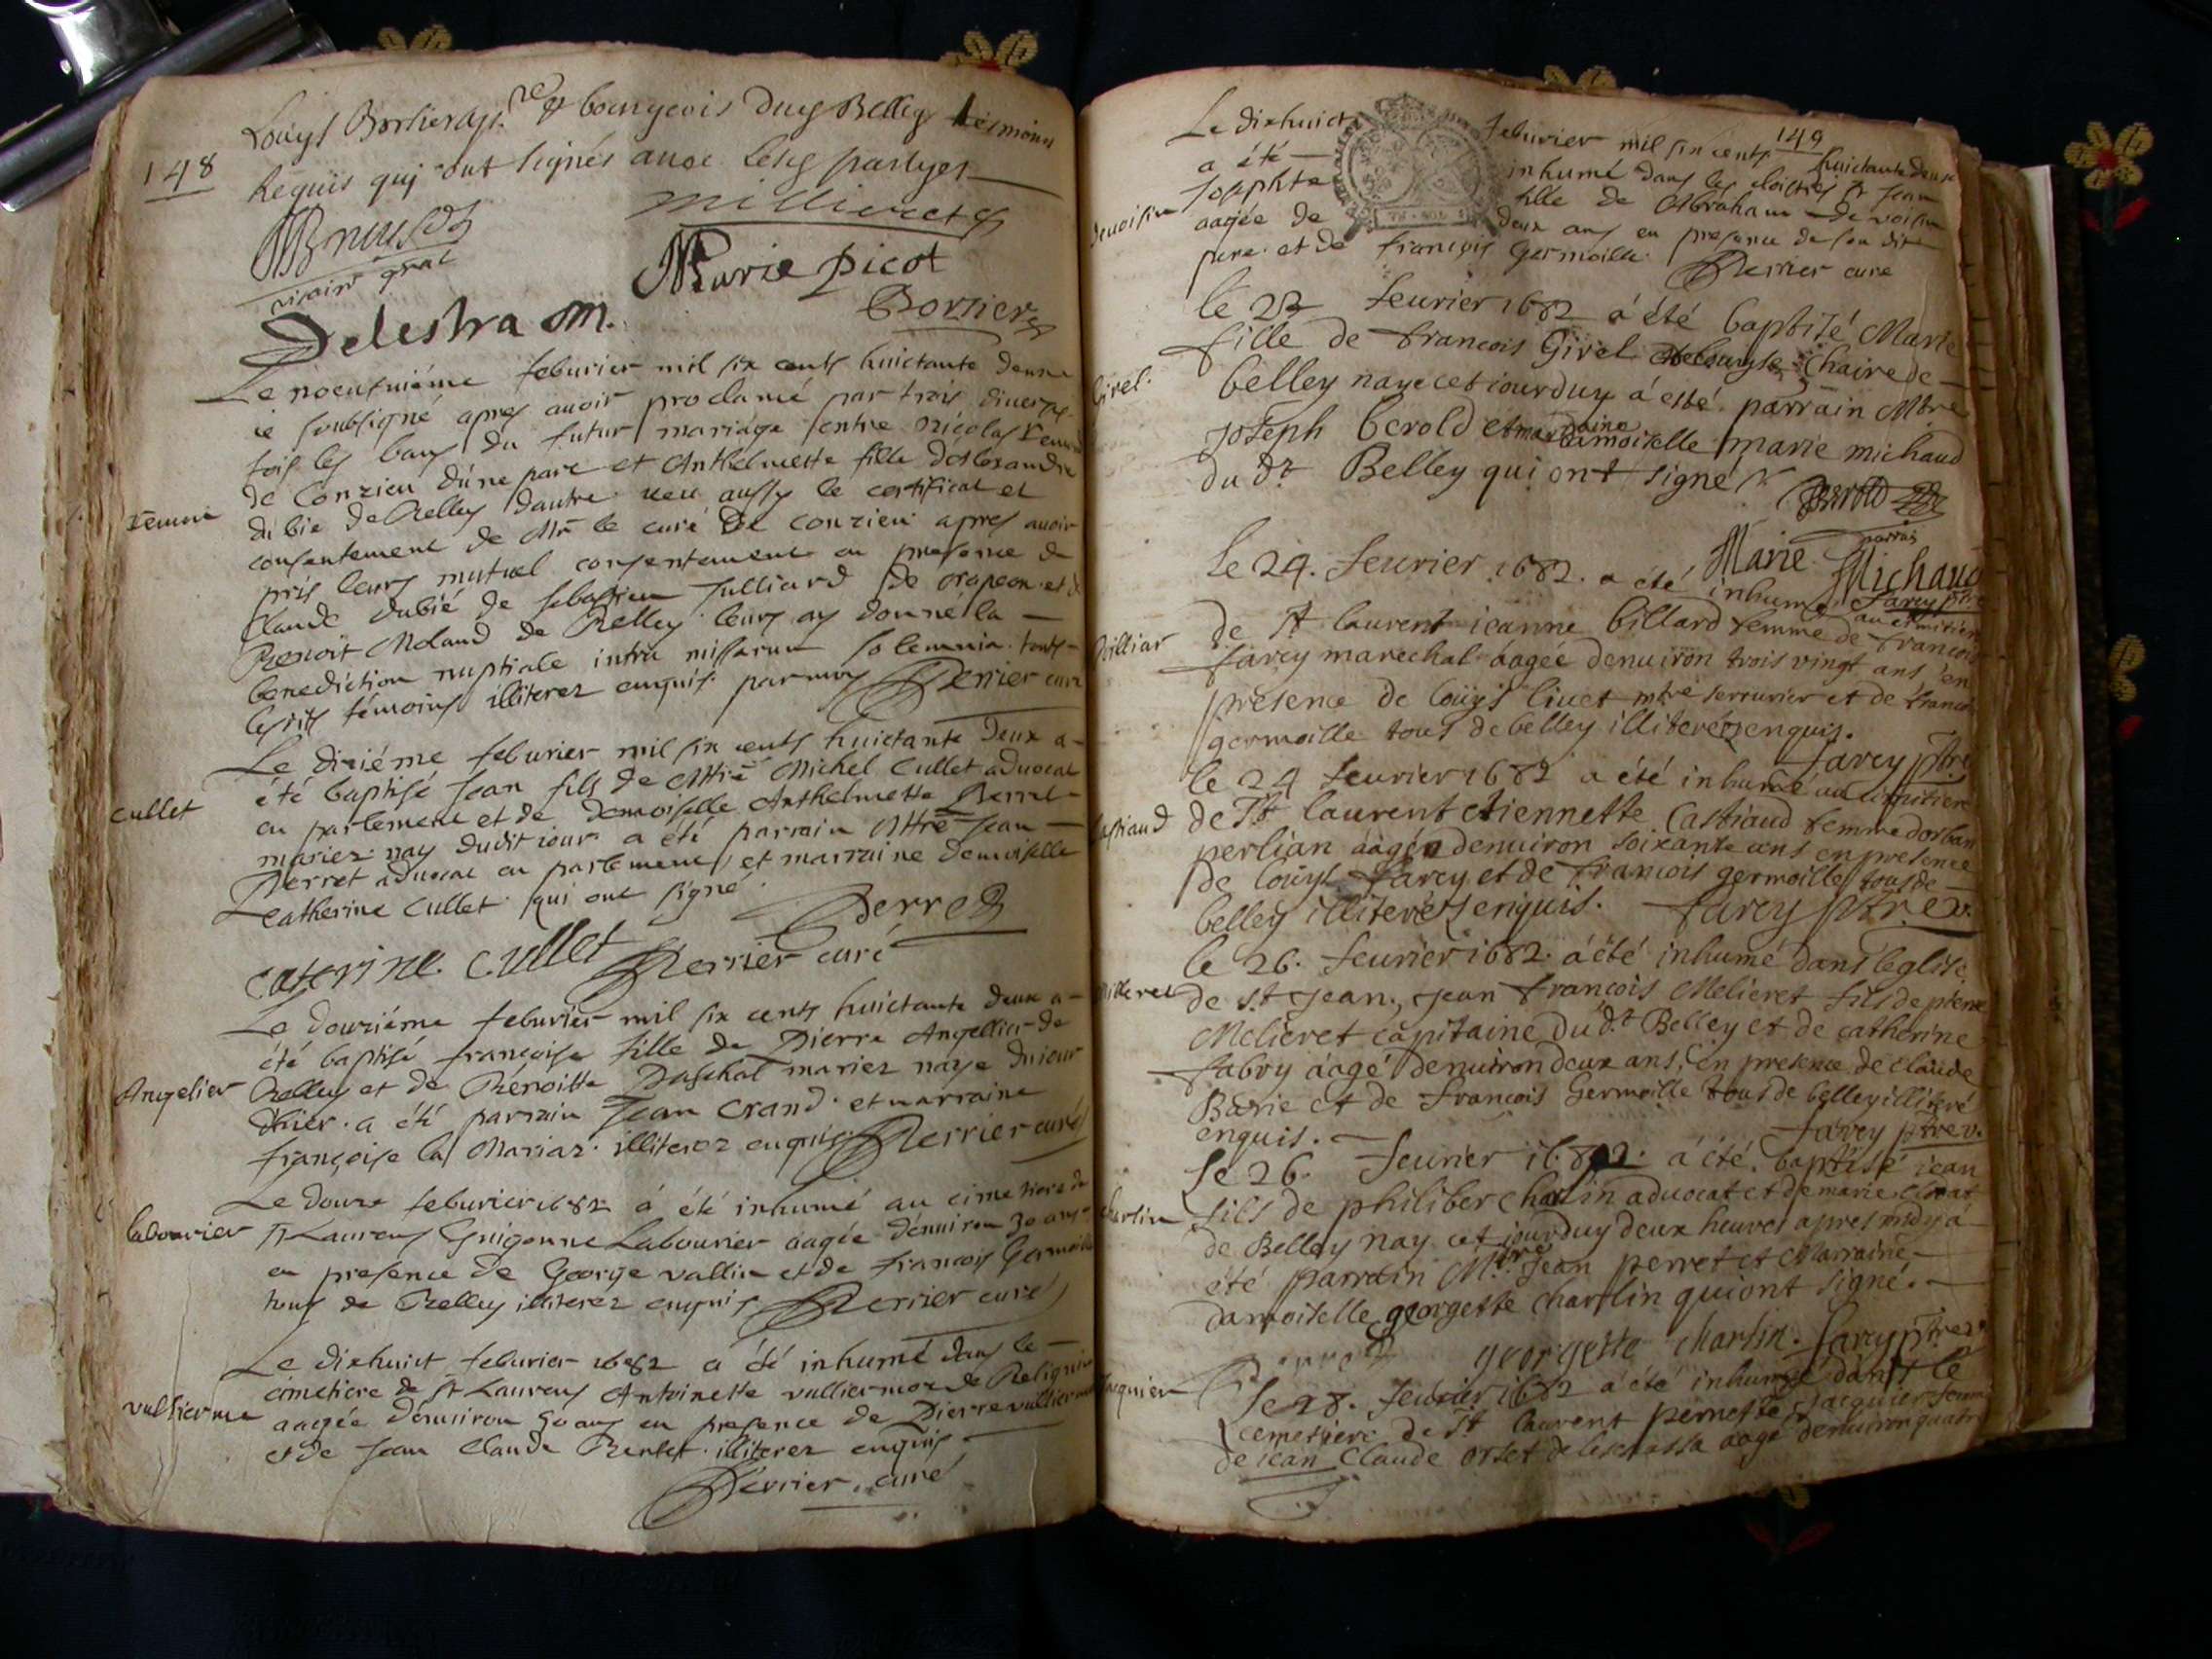 148
Louys Borlier et bourgeois Belley tesmoins
Requis quj ont signés auec lesd partyes
millieret
Marie picot
Borrier
Delestra m.
Le noeufuiéme feburier mil six cents huictante deux
ie soubsigné apres auoir proclamé par trois diuerses
fois les bans du futur mariage entre nicolas
de Conzieu d'une part et Anthelmette fille d'Alexandre
du bie de Belley d'autre ueu aussy le certificat et
consentement de Mr le curé De conzieu apres auoir
pris leurs mutuel consentement en presence de
Claude dubié de sebastien Julliard de et de
Benoit Moland de Belley leurs ay donné la
benediction nuptiale intra missarum solemnia touts
lesdits témoins illiterez enquis par moy Perrier curé
cullet
Le diziéme feburier mil six cents huictante deux a
été baptisé Jean fils de Mtre Michel Cullet aduocat
en parlement et de demoiselle Anthelmette Perret
mariez nay dudit iour a été parrain Mtre Jean
Perret aduocat en parlement, et marraine demoiselle
Catherine Cullet qui ont signé.
Perret
caterine cullet Perrier curé
Angelier
Le douziéme feburier mil six cents huictante deux a
été baptisé françoise fille de Pierre Angellier de
Belley et de Benoitte Paschal mariez naye du iour
d'hier a été parrain Jean Crand et marraine
françoise la Mariaz illiterez enquis. Perrier curé
labourier
Le douze feburier 1682 a été inhumé au cimetiere de
st Laurens Guigonne Labourier aagée denuiron 30 ans
en presence de George vallin et de francois Germoille
tous de Belley illiterez enquis Perrier curé
vullierme
Le dixhuict feburier 1682 a été inhumé dans le
cimetiere de st Laurens Antoinette vulliermoz de
aagée denuiron 50 ans en presence de Pierre vullierme
et de Jean Claude illiterez enquis
Perrier curé
149
Le dixhuict feburier mil six cents huictante deux
a été inhumé dans les cloistres st Jean
Josephte fille de Abraham de voisin
aagée de deux ans en presence de son dit
pere et de françois Germoille. Perrier curé
deuoisin
le 22 feurier 1682 á été baptisé Marie
fille de francois Girel et de Chaire de
Girel.
belley naye cet iourduy á esté parrain Mtre
Joseph berold et marraine damoiselle marie michaud
du dt Belley qui ont signé
Berold
parrin
Marie Michaud
le 24. feurier 1682. a été inhumé au cimitiere
farcy ptre
Billiar
de St laurent ieanne billard femme de francois
farcy marechal aagée denuiron trois vingt ans en
presence de loüys liuet mtre serrurier et de francois
germoille tous de belley illiterez enquis.
farcy ptre
le 24 feurier 1682 a été inhumé au cimitiere
Castiaud
de St laurent etiennette Castiaud femme dorban
perlian áagée denuiron soixante ans en presence
de loüys farcy et de francois germoille tous de
belley illiterez enquis. farcy ptre v.
le 26. feurier 1682. á été inhumé dans leglise
Milleret
de st Jean, Jean francois Melieret fils de pierre
Melieret capitaine du dt Belley et de catherine
fabry áagé denuiron deux ans, en presence de claude
Barie et de francois Germoille tous de belley illiteré
enquis. farcy ptre v.
Le 26. feurier 1682. á été baptisé iean
Charlin
fils de philiber charlin aduocat et de marie
de Belley nay cet iourduy deux heures apres midy á
été parrain Mtre Jean perret et Marraine
damoiselle georgette charlin qui ont signé.
Perret georgette charlin. farcy ptre v.
Jacquier
Le 28. feurier 1682 á été inhumé dans le
cemetiere de St laurent pernette Jacquier femme
de iean Claude orset aagé denuiron quatre